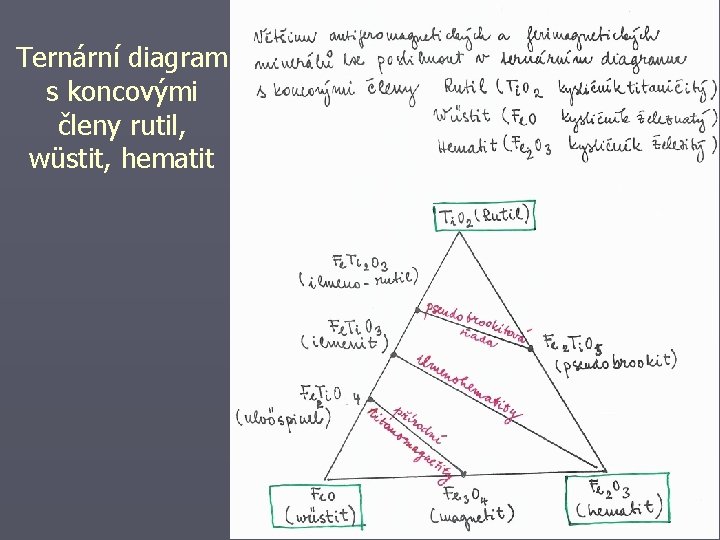 Ternární diagram
s koncovými
členy rutil,
wüstit, hematit
Většinu antiferomagnetických a ferimagnetických
minerálů lze postihnout v ternárním diagramu
s koncovými členy Rutil (TiO2 kysličník titaničitý)
Wüstit (FeO kysličník železnatý)
Hematit (Fe2O3 kysličník železitý)
TiO2 (Rutil)
FeTi2O3
(ilmeno-rutil)
pseudobrookitová
řada
FeTiO3
(ilmenit)
Fe2TiO5
(pseudobrookit)
ilmenohematity
Fe2TiO4
(ulvöspinel)
přírodní
titanomagnetity
FeO
(wüstit)
Fe3O4
(magnetit)
Fe2O3
(hematit)